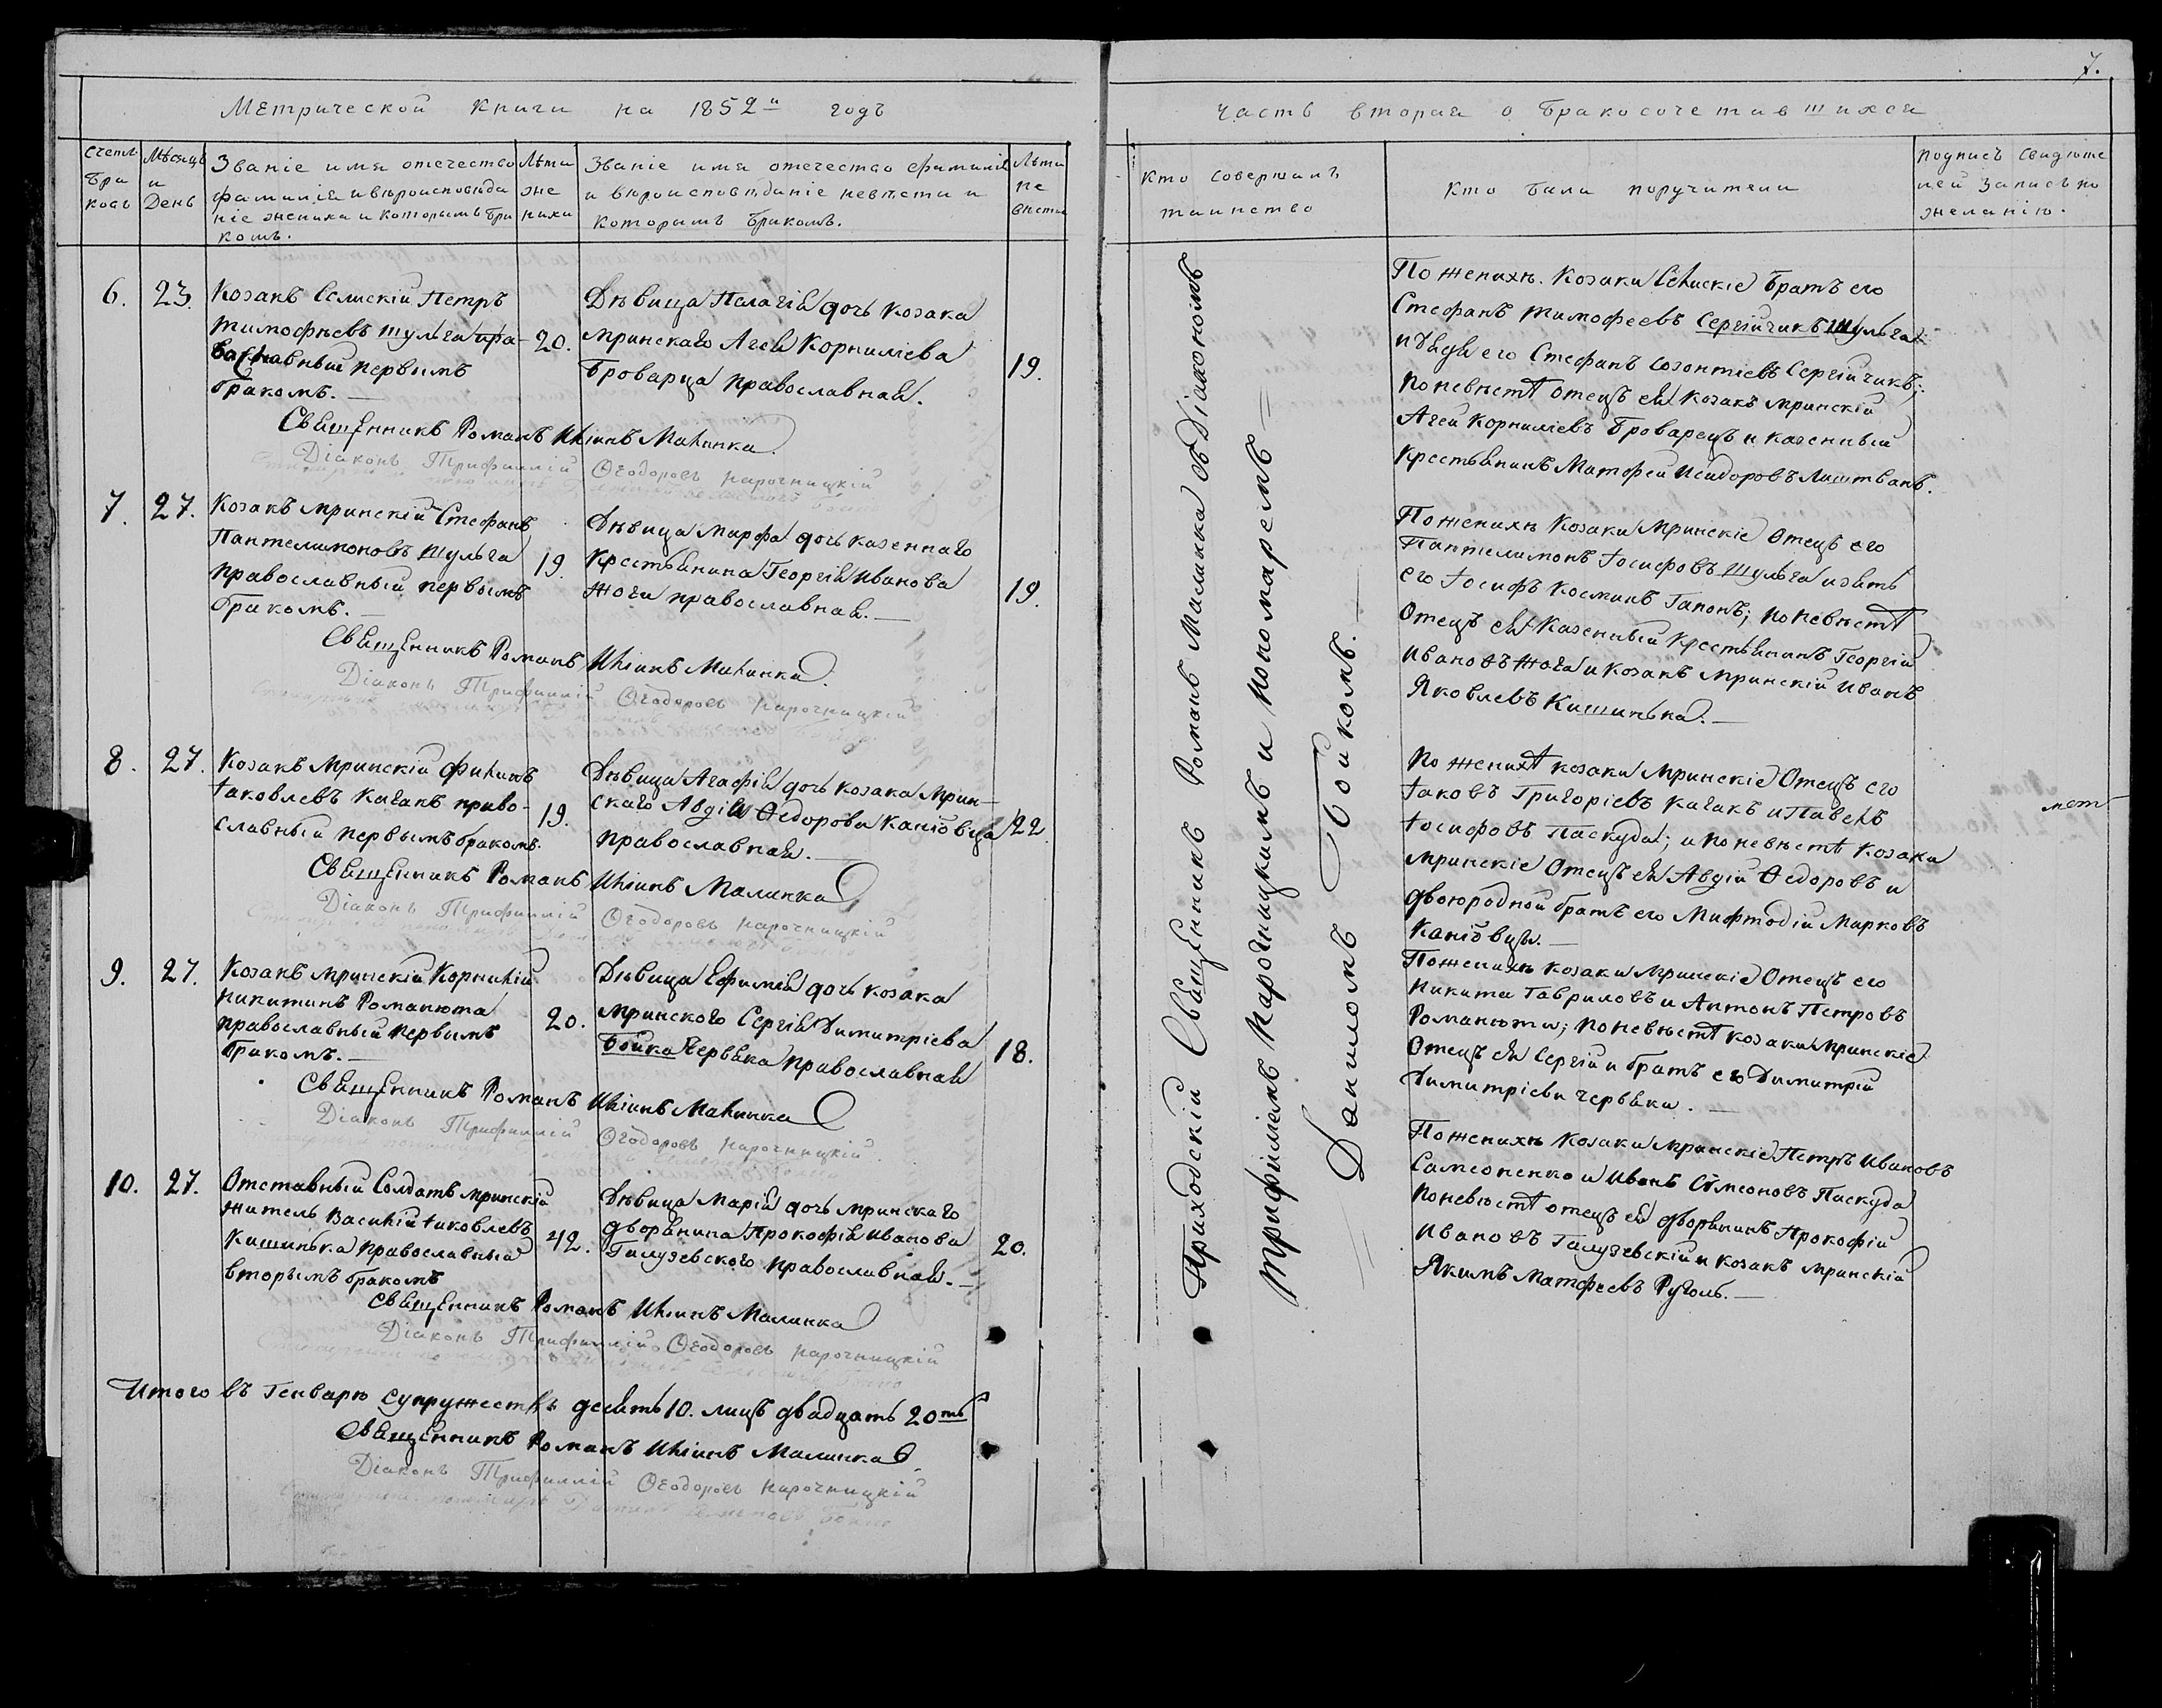 Метрической книги на 1852й годъ
Счетъ браковъ
Мѣсяцъ и День
Званіе имя отечество
фамилія и вѣроисповѣда
ніе жениха и которымъ бра
комъ.
Лѣта
же
ниха
Званіе имя отечество фамилія
и вѣроисповѣданіе невѣсты и
которымъ бракомъ.
Лѣта
не
вѣсты
6.
23.
Козакъ Селискій Петръ
Тимофѣевъ Шульга пра-
вославный первымъ
бракомъ.
20.
Дѣвица Палагія дочь козака
мринскаго Агея Корнилієва
Броварца православная.
19.
Священникъ Романъ Иліинъ Малинка
Діаконъ Трифиллій Ѳеодоровъ Нарочницкій
7.
27.
Козакъ мринскій Стефанъ
Пантелимоновъ Шульга
православный первымъ
бракомъ.
19.
Дѣвица Марфа дочь казеннаго
крестьянина Георгія Иванова
Жоги православная.
19.
Священникъ Романъ Иліинъ Малинка
Діаконъ Трифиллій Ѳеодоровъ Нарочницкій
8.
27.
Козакъ мринскій Филипъ
Іаковлевъ Кагакъ право-
славный первымъ бракомъ.
19.
Дѣвица Агафія дочь козака мрин-
скаго Авдія Ѳедорова Каніовца
православная.
22
Священникъ Романъ Иліинъ Малинка
Діаконъ Трифиллій Ѳеодоровъ Нарочницкій
9.
27.
Козакъ мринскій Корнилій
Никитинъ Романюта
православный первымъ
бракомъ.
20.
Дѣвица Ефимія дочь козака
мринского Сергія Димитріева
Бойка Червяка православная
18.
Священникъ Романъ Иліинъ Малинка
Діаконъ Трифиллій Ѳеодоровъ Нарочницкій.
10.
27.
Отставный Солдатъ мринскій
житель Василій Іаковлевъ
Кишинька православный
вторымъ бракомъ
42.
Дѣвица Марія дочь мринскаго
дворянина Прокофія Иванова
Галузевского православная.
20.
Священникъ Романъ Иліинъ Малинка
Діаконъ Трифиллій Ѳеодоровъ Нарочницкій
Итого въ Генварѣ супружествъ десять 10. лицъ двадцать 20ть
Священникъ Романъ Иліинъ Малинка
Діаконъ Трифиллій Ѳеодоровъ Нарочницкій
7.
часть вторая о бракосочетавшихся
Кто совершалъ
таинство
Кто были поручители
Подпись свидѣте
лей записъ по
желанію.
Приходскій Священникъ Романъ Малинка съ Діакономъ
Трифиліемъ Нарочницкимъ и пономаремъ
Даниломъ Бойкомъ.
По женихѣ. Козаки Селискіе братъ его
Стефанъ Тимофеевъ Сергійчикъ Шульга
и дядя его Стефанъ Созонтіевъ Сергійчикъ;
по невѣстѣ отецъ ея козакъ мринскій
Агей Корниліевъ Броварецъ и казенный
крестьянинъ Матфей Исидоровъ Лиштванъ.
По женихѣ Козаки Мринскіе Отецъ его
Пантелимонъ Іосифовъ Шульга и зять
его Іосифъ Косминъ Гапонъ; по невѣстѣ
Отецъ ея казенный крестьянинъ Георгій
Ивановъ Жога и козакъ мринскій Иванъ
Яковлевъ Кишинька.
По женихѣ козаки мринскіе Отецъ его
Іаковъ Григоріевъ Кагакъ и Павелъ
Іосифовъ Паскуда; и по невѣстѣ козаки
мринскіе Отецъ ея Авдій Ѳедоровъ и
двоюродной братъ его Мифтодій Марковъ
Каніовцы.
По женихѣ козаки мринскіе Отецъ его
Никита Гавриловъ и Антонъ Петровъ
Романюты; по невѣстѣ козаки мринскіе
Отецъ ея Сергій и братъ его Димитрій
Димитріевы Червяки.
По женихѣ козаки мринскіе Петръ Ивановъ
Самсоненко и Иванъ Симеоновъ Паскуда
по невѣстѣ отецъ ея дворянинъ Прокофій
Ивановъ Галузевскій и козакъ мринскій
Якимъ Матфеевъ Руголь.